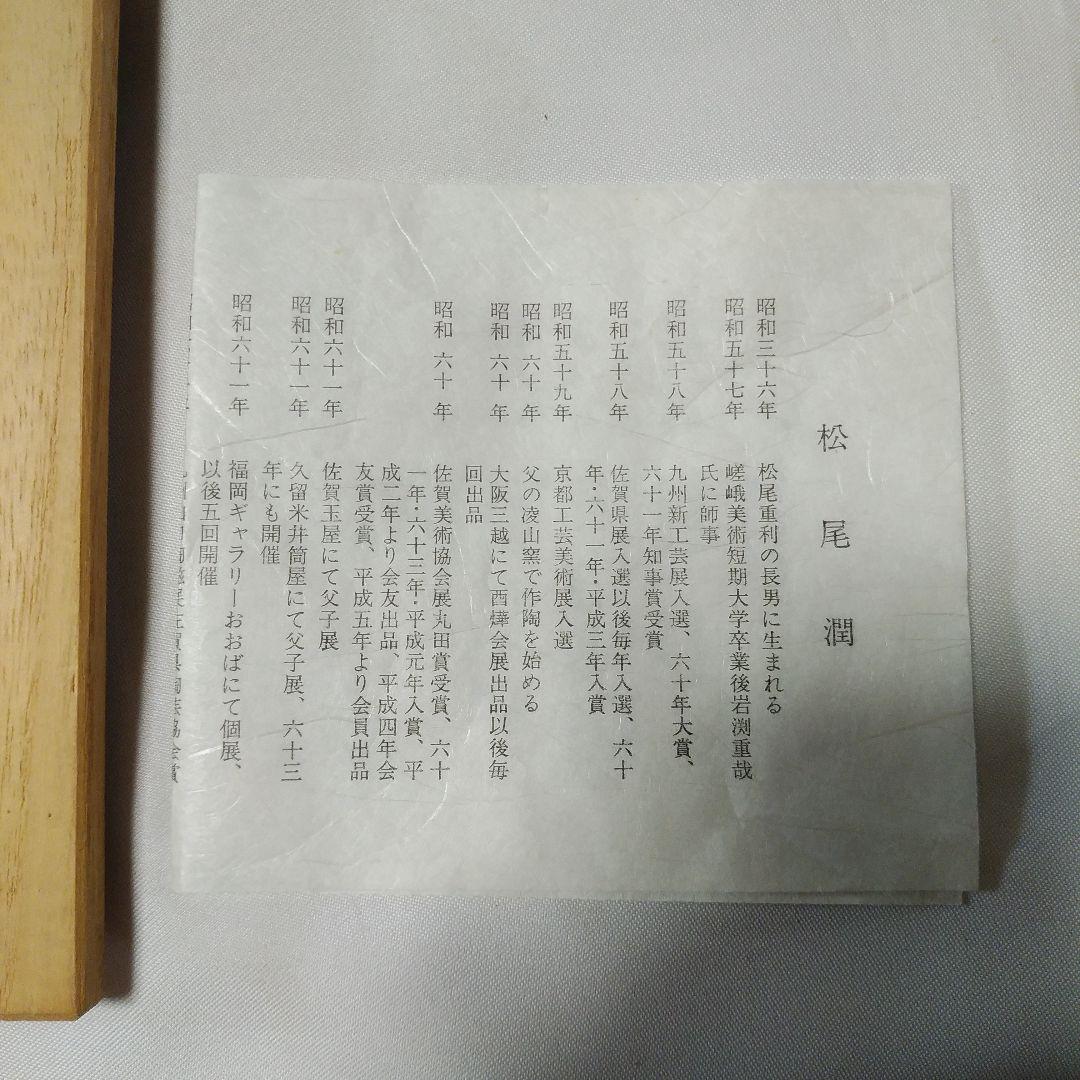 松尾潤
昭和三十六年 松尾重利の長男に生まれる
昭和五十七年 嵯峨美術短期大学卒業後岩渕重哉
氏に師事
昭和五十八年 九州新工芸展入選、六十年大賞、
六十一年知事賞受賞
昭和五十八年 佐賀県展入選以後毎年入選、六十
年・六十一年・平成三年入賞
昭和五十九年 京都工芸美術展入選
昭和六十年 父の凌山窯で作陶を始める
昭和六十年 大阪三越にて酉燁会展出品以後毎
回出品
昭和六十年 佐賀美術協会展丸田賞受賞、六十
一年・六十三年・平成元年入賞、平
成二年より会友出品、平成四年会
友賞受賞、平成五年より会員出品
昭和六十一年 佐賀玉屋にて父子展
昭和六十一年 久留米井筒屋にて父子展、六十三
年にも開催
昭和六十一年 福岡ギャラリーおおばにて個展、
以後五回開催